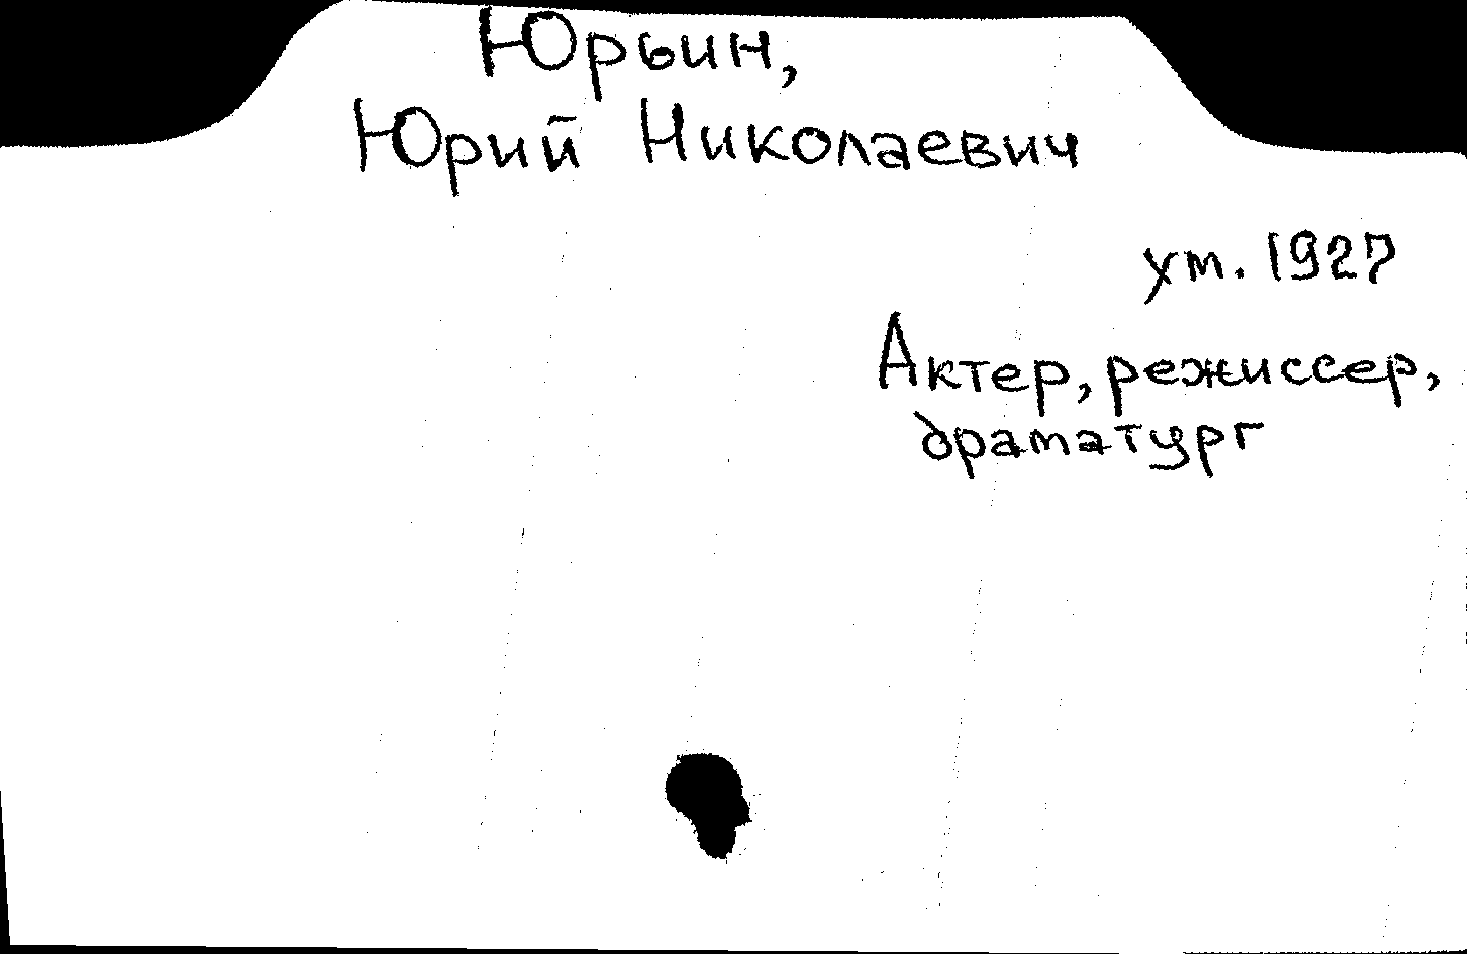 Юрьин,
Юрий Николаевич
ум. 1927
Актер, режиссер,
драматург